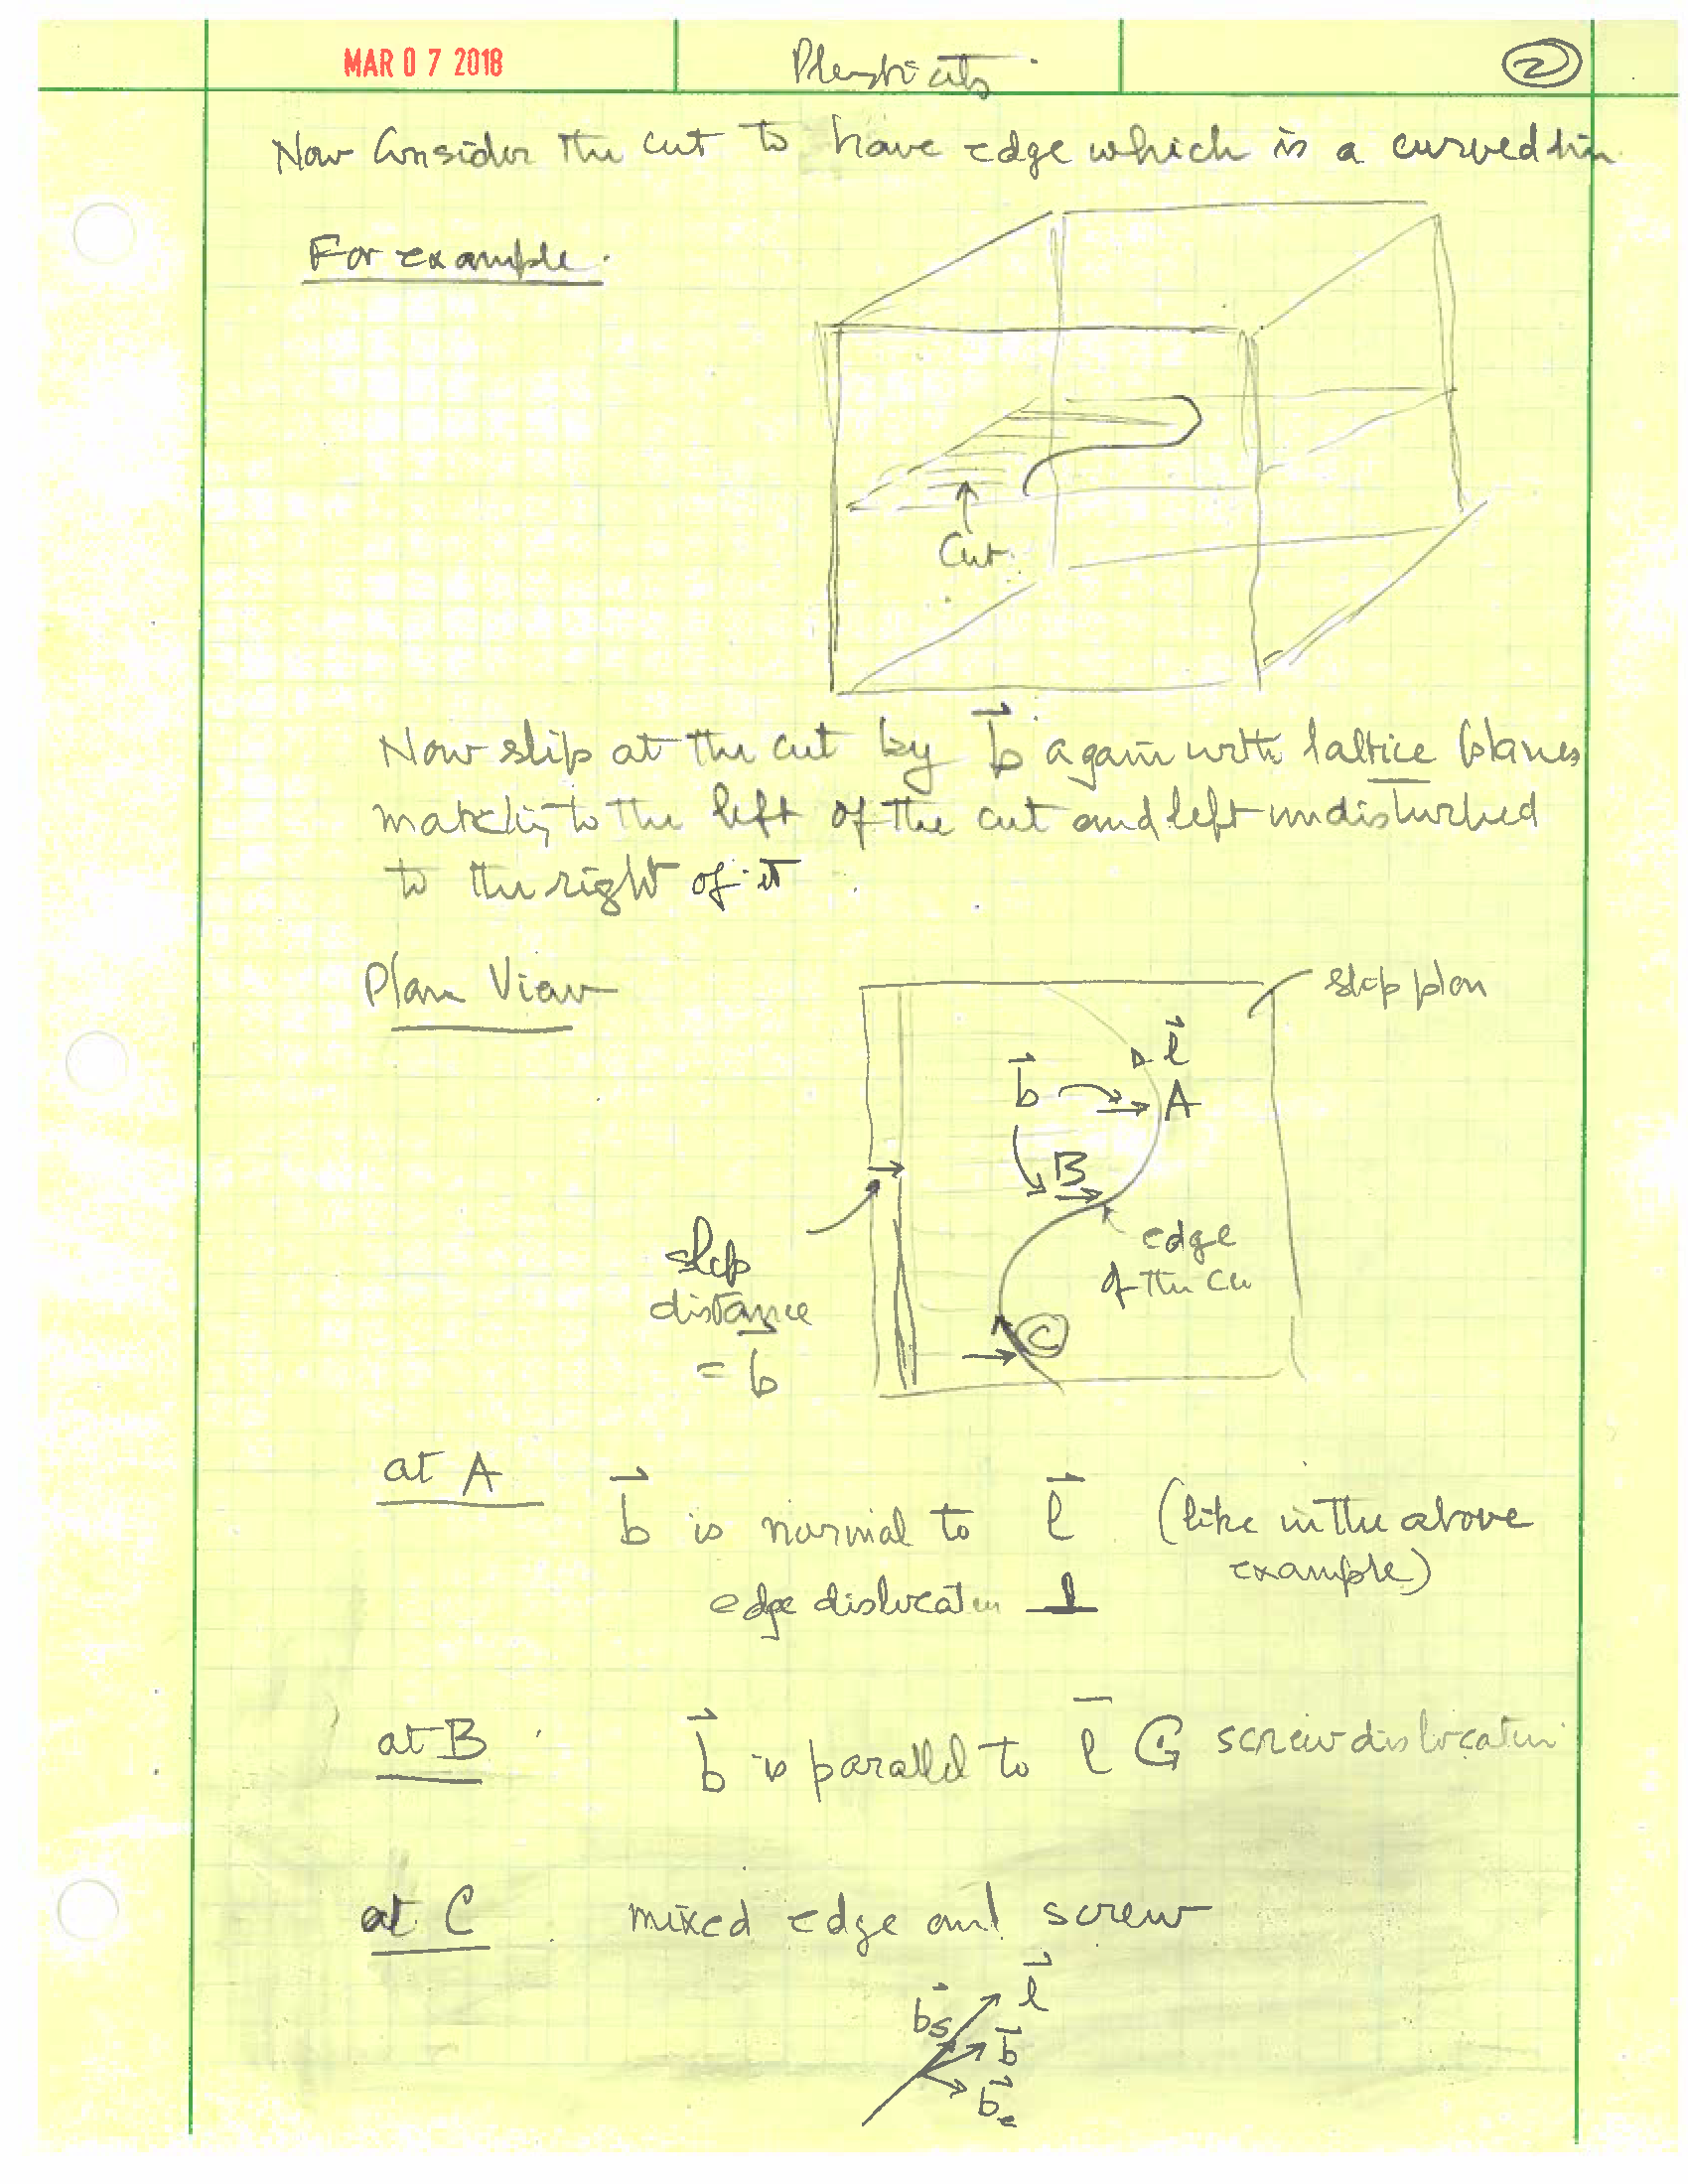 MAR 07 2018
Plasticity
2
Now Consider the cut to have edge which is a curved lin
For example.
Cut.
Now slip at the cut by b again with lattice planes
matching to the left of the cut and left undisturbed
to the right of it
Plan View
slip plan
l
b
A
B
edge
of the cu
slip
distance
= b
C
at A
b is normal to l (like in the above
example)
edge dislocation ⊥
at B
b is parallel to l G screw dislocation
at C
mixed edge and screw
l
bs
b
be